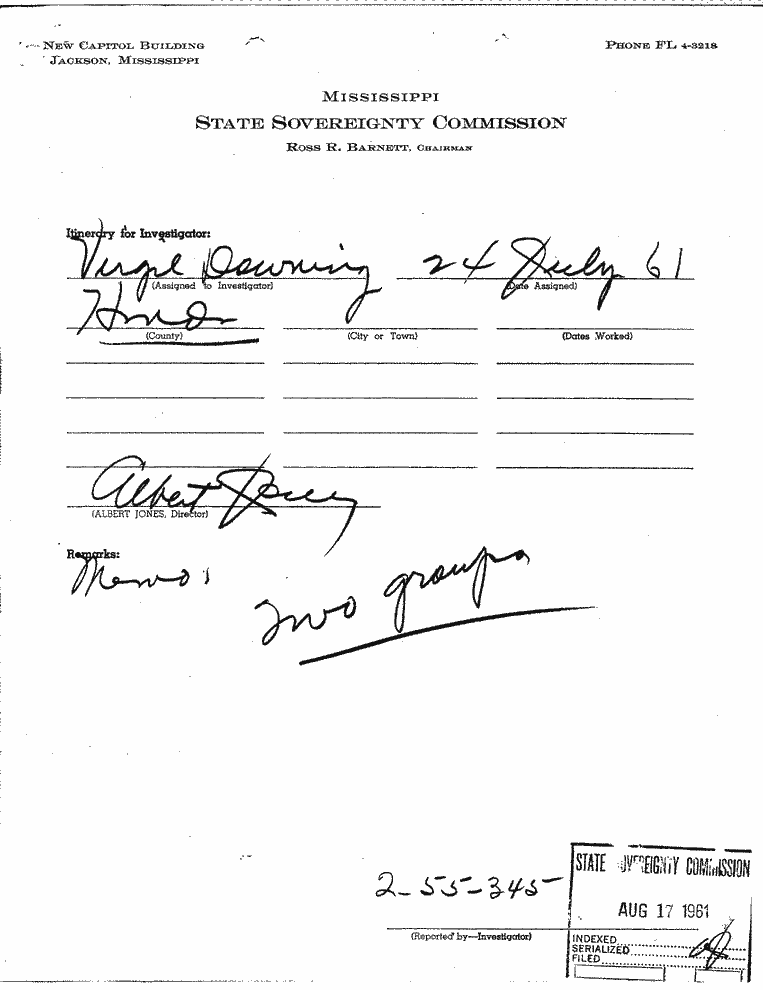 NEW CAPITOL BUILDING
JACKSON, MISSISSIPPI
PHONE FL 4-3218
MISSISSIPPI
STATE SOVEREIGNTY COMMISSION
ROSS R. BARNETT, CHAIRMAN
Itinerary for Investigator:
Virgil Downing 24 July 61
(Assigned to Investigator) (Date Assigned)
Hinds
(County) (City or Town) (Dates Worked)
Albert Jones
(ALBERT JONES, Director)
Remarks:
Memo
Two groups
2-55-345
(Reported by—Investigator)
STATE SOVEREIGNTY COMMISSION
AUG 17 1961
INDEXED
SERIALIZED
FILED